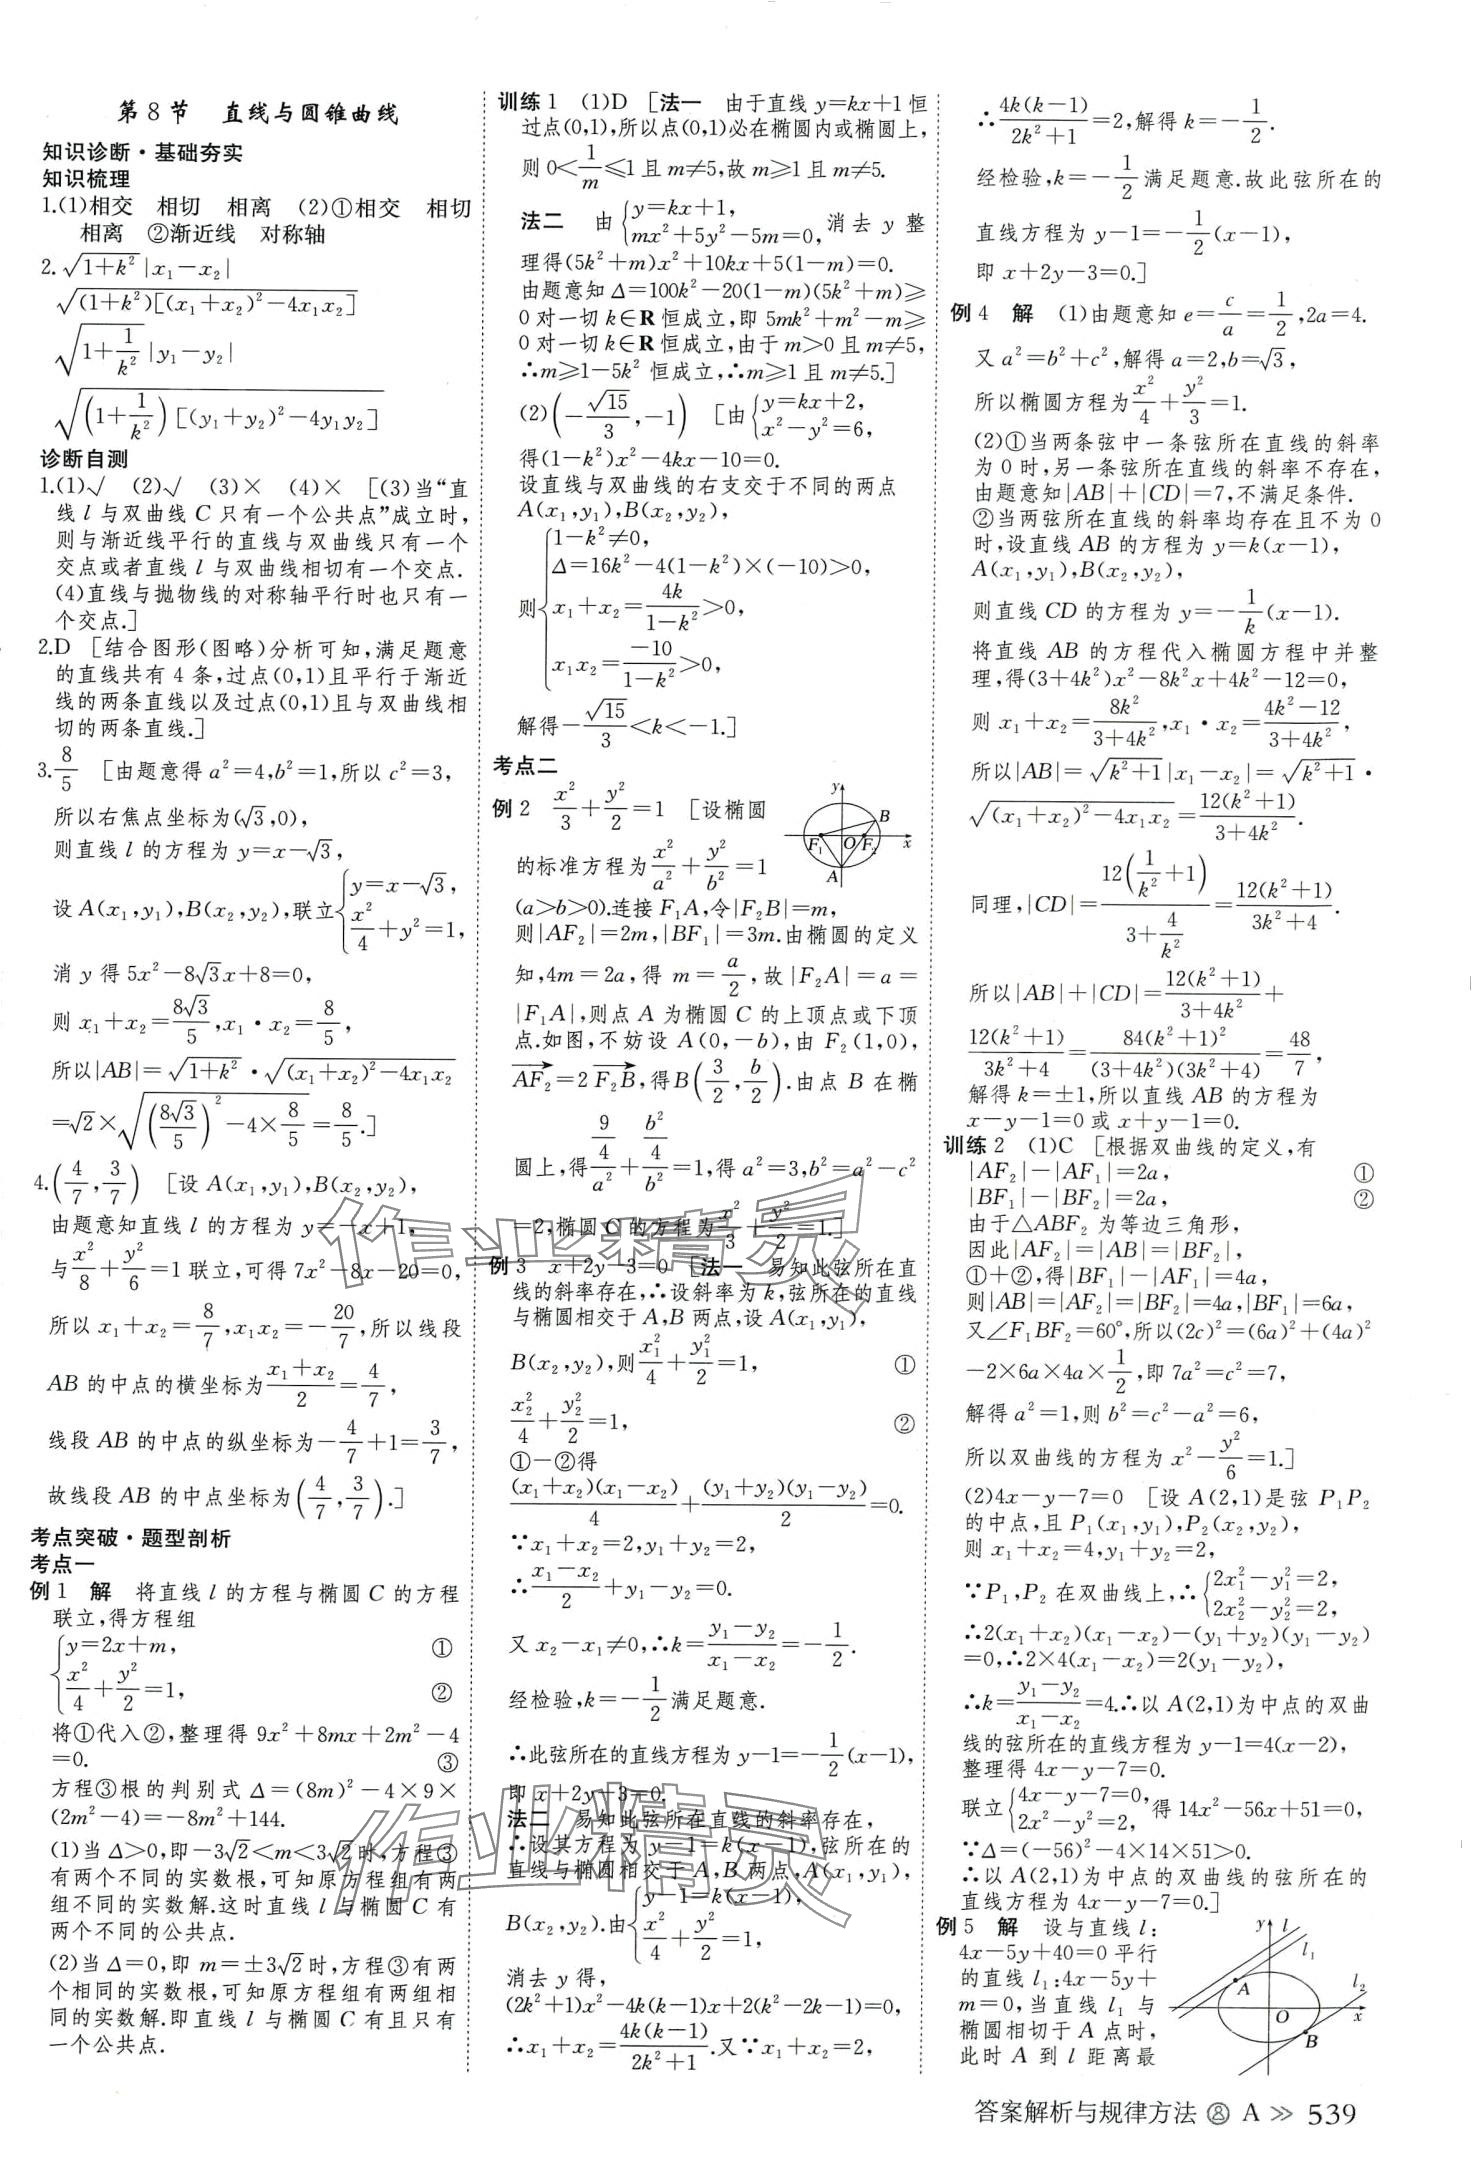 第8节 直线与圆锥曲线
知识诊断·基础夯实
知识梳理
1.(1)相交 相切 相离 (2)①相交 相切
相离 ②渐近线 对称轴
2.√(1+k²)|x₁-x₂|
√((1+k²)[(x₁+x₂)²-4x₁x₂])
√(1+1/k²)|y₁-y₂|
√((1+1/k²)[(y₁+y₂)²-4y₁y₂])
诊断自测
1.(1)√ (2)√ (3)× (4)× [(3)当“直
线l与双曲线C只有一个公共点”成立时,
则与渐近线平行的直线与双曲线只有一个
交点或者直线l与双曲线相切有一个交点.
(4)直线与抛物线的对称轴平行时也只有一
个交点.]
2.D [结合图形(图略)分析可知,满足题意
的直线共有4条,过点(0,1)且平行于渐近
线的两条直线以及过点(0,1)且与双曲线相
切的两条直线.]
3.8/5 [由题意得a²=4,b²=1,所以c²=3,
所以右焦点坐标为(√3,0),
则直线l的方程为y=x-√3,
设A(x₁,y₁),B(x₂,y₂),联立{y=x-√3, x²/4+y²=1,
消y得5x²-8√3x+8=0,
则x₁+x₂=8√3/5,x₁·x₂=8/5,
所以|AB|=√(1+k²)·√((x₁+x₂)²-4x₁x₂)
=√2×√((8√3/5)²-4×8/5)=8/5.]
4.(4/7,3/7) [设A(x₁,y₁),B(x₂,y₂),
由题意知直线l的方程为y=-x+1,
与x²/8+y²/6=1联立,可得7x²-8x-20=0,
所以x₁+x₂=8/7,x₁x₂=-20/7,所以线段
AB的中点的横坐标为(x₁+x₂)/2=4/7,
线段AB的中点的纵坐标为-4/7+1=3/7,
故线段AB的中点坐标为(4/7,3/7).]
考点突破·题型剖析
考点一
例1 解 将直线l的方程与椭圆C的方程
联立,得方程组
{y=2x+m, ①
x²/4+y²/2=1, ②
将①代入②,整理得9x²+8mx+2m²-4
=0. ③
方程③根的判别式Δ=(8m)²-4×9×
(2m²-4)=-8m²+144.
(1)当Δ>0,即-3√2<m<3√2时,方程③
有两个不同的实数根,可知原方程组有两
组不同的实数解.这时直线l与椭圆C有
两个不同的公共点.
(2)当Δ=0,即m=±3√2时,方程③有两
个相同的实数根,可知原方程组有两组相
同的实数解.即直线l与椭圆C有且只有
一个公共点.
训练1 (1)D [法一 由于直线y=kx+1恒
过点(0,1),所以点(0,1)必在椭圆内或椭圆上,
则0<1/m≤1且m≠5,故m≥1且m≠5.
法二 由{y=kx+1, mx²+5y²-5m=0,消去y整
理得(5k²+m)x²+10kx+5(1-m)=0.
由题意知Δ=100k²-20(1-m)(5k²+m)≥
0对一切k∈R恒成立,即5mk²+m²-m≥
0对一切k∈R恒成立,由于m>0且m≠5,
∴m≥1-5k²恒成立,∴m≥1且m≠5.]
(2)(-√15/3,-1) [由{y=kx+2, x²-y²=6,
得(1-k²)x²-4kx-10=0.
设直线与双曲线的右支交于不同的两点
A(x₁,y₁),B(x₂,y₂),
则{1-k²≠0,
Δ=16k²-4(1-k²)×(-10)>0,
x₁+x₂=4k/(1-k²)>0,
x₁x₂=-10/(1-k²)>0,
解得-√15/3<k<-1.]
考点二
例2 x²/3+y²/2=1 [设椭圆
的标准方程为x²/a²+y²/b²=1
(a>b>0).连接F₁A,令|F₂B|=m,
则|AF₂|=2m,|BF₁|=3m.由椭圆的定义
知,4m=2a,得m=a/2,故|F₂A|=a=
|F₁A|,则点A为椭圆C的上顶点或下顶
点.如图,不妨设A(0,-b),由F₂(1,0),
AF₂=2F₂B,得B(3/2,b/2).由点B在椭
圆上,得(9/4)/a²+(b²/4)/b²=1,得a²=3,b²=a²-c²
=2,椭圆C的方程为x²/3+y²/2=1.]
y B F₁ O F₂ x A
例3 x+2y-3=0 [法一 易知此弦所在直
线的斜率存在,∴设斜率为k,弦所在的直线
与椭圆相交于A,B两点,设A(x₁,y₁),
B(x₂,y₂),则x₁²/4+y₁²/2=1, ①
x₂²/4+y₂²/2=1, ②
①-②得
(x₁+x₂)(x₁-x₂)/4+(y₁+y₂)(y₁-y₂)/2=0.
∵x₁+x₂=2,y₁+y₂=2,
∴(x₁-x₂)/2+y₁-y₂=0.
又x₂-x₁≠0,∴k=(y₁-y₂)/(x₁-x₂)=-1/2.
经检验,k=-1/2满足题意.
∴此弦所在的直线方程为y-1=-1/2(x-1),
即x+2y-3=0.
法二 易知此弦所在直线的斜率存在,
∴设其方程为y-1=k(x-1),弦所在的
直线与椭圆相交于A,B两点,A(x₁,y₁),
B(x₂,y₂).由{y-1=k(x-1), x²/4+y²/2=1,
消去y得,
(2k²+1)x²-4k(k-1)x+2(k²-2k-1)=0,
∴x₁+x₂=4k(k-1)/(2k²+1).又∵x₁+x₂=2,
∴4k(k-1)/(2k²+1)=2,解得k=-1/2.
经检验,k=-1/2满足题意.故此弦所在的
直线方程为y-1=-1/2(x-1),
即x+2y-3=0.]
例4 解 (1)由题意知e=c/a=1/2,2a=4.
又a²=b²+c²,解得a=2,b=√3,
所以椭圆方程为x²/4+y²/3=1.
(2)①当两条弦中一条弦所在直线的斜率
为0时,另一条弦所在直线的斜率不存在,
由题意知|AB|+|CD|=7,不满足条件.
②当两弦所在直线的斜率均存在且不为0
时,设直线AB的方程为y=k(x-1),
A(x₁,y₁),B(x₂,y₂),
则直线CD的方程为y=-1/k(x-1).
将直线AB的方程代入椭圆方程中并整
理,得(3+4k²)x²-8k²x+4k²-12=0,
则x₁+x₂=8k²/(3+4k²),x₁·x₂=(4k²-12)/(3+4k²),
所以|AB|=√(k²+1)|x₁-x₂|=√(k²+1)·
√((x₁+x₂)²-4x₁x₂)=12(k²+1)/(3+4k²).
同理,|CD|=12(1/k²+1)/(3+4/k²)=12(k²+1)/(3k²+4).
所以|AB|+|CD|=12(k²+1)/(3+4k²)+
12(k²+1)/(3k²+4)=84(k²+1)²/((3+4k²)(3k²+4))=48/7,
解得k=±1,所以直线AB的方程为
x-y-1=0或x+y-1=0.
训练2 (1)C [根据双曲线的定义,有
|AF₂|-|AF₁|=2a, ①
|BF₁|-|BF₂|=2a, ②
由于△ABF₂为等边三角形,
因此|AF₂|=|AB|=|BF₂|,
①+②,得|BF₁|-|AF₁|=4a,
则|AB|=|AF₂|=|BF₂|=4a,|BF₁|=6a,
又∠F₁BF₂=60°,所以(2c)²=(6a)²+(4a)²
-2×6a×4a×1/2,即7a²=c²=7,
解得a²=1,则b²=c²-a²=6,
所以双曲线的方程为x²-y²/6=1.]
(2)4x-y-7=0 [设A(2,1)是弦P₁P₂
的中点,且P₁(x₁,y₁),P₂(x₂,y₂),
则x₁+x₂=4,y₁+y₂=2,
∵P₁,P₂在双曲线上,∴{2x₁²-y₁²=2, 2x₂²-y₂²=2,
∴2(x₁+x₂)(x₁-x₂)-(y₁+y₂)(y₁-y₂)
=0,∴2×4(x₁-x₂)=2(y₁-y₂),
∴k=(y₁-y₂)/(x₁-x₂)=4.∴以A(2,1)为中点的双曲
线的弦所在的直线方程为y-1=4(x-2),
整理得4x-y-7=0.
联立{4x-y-7=0, 2x²-y²=2,得14x²-56x+51=0,
∵Δ=(-56)²-4×14×51>0.
∴以A(2,1)为中点的双曲线的弦所在的
直线方程为4x-y-7=0.]
例5 解 设与直线l:
4x-5y+40=0平行
的直线l₁:4x-5y+
m=0,当直线l₁与
椭圆相切于A点时,
此时A到l距离最
y l l₁ l₂ A O x B
作业精灵
作业精灵
答案解析与规律方法 A 539